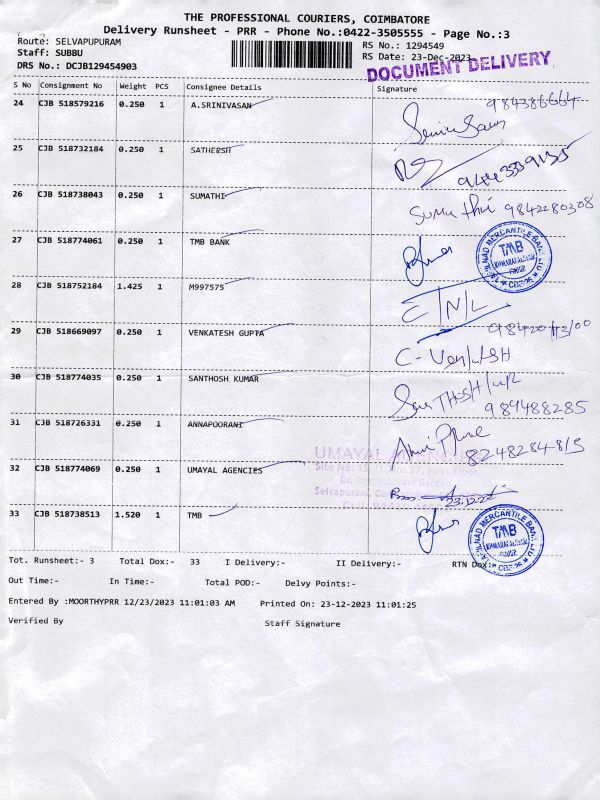 THE PROFESSIONAL COURIERS, COIMBATORE
Delivery Runsheet - PRR - Phone No.:0422-3505555 - Page No.:3
Route: SELVAPUPURAM
RS No.: 1294549
Staff: SUBBU
RS Date: 23-Dec-2023
DRS No.: DCJB129454903
DOCUMENT DELIVERY
S No Consignment No Weight PCS Consignee Details Signature
24 CJB 518579216 0.250 1 A.SRINIVASAN
25 CJB 518732184 0.250 1 SATHERSH
26 CJB 518738043 0.250 1 SUMATHI Sumathi 9842280308
27 CJB 518774061 0.250 1 TMB BANK
TMB
28 CJB 518752184 1.425 1 M997575
29 CJB 518669097 0.250 1 VENKATESH GUPTA
30 CJB 518774035 0.250 1 SANTHOSH KUMAR
989488285
31 CJB 518726331 0.250 1 ANNAPOORANI
UMAYAL
32 CJB 518774069 0.250 1 UMAYAL AGENCIES
33 CJB 518738513 1.520 1 TMB
TMB
Tot. Runsheet:- 3 Total Dox:- 33 I Delivery:- II Delivery:- RTN Dox:-
Out Time:- In Time:- Total POD:- Delvy Points:-
Entered By :MOORTHYPRR 12/23/2023 11:01:03 AM Printed On: 23-12-2023 11:01:25
Verified By Staff Signature